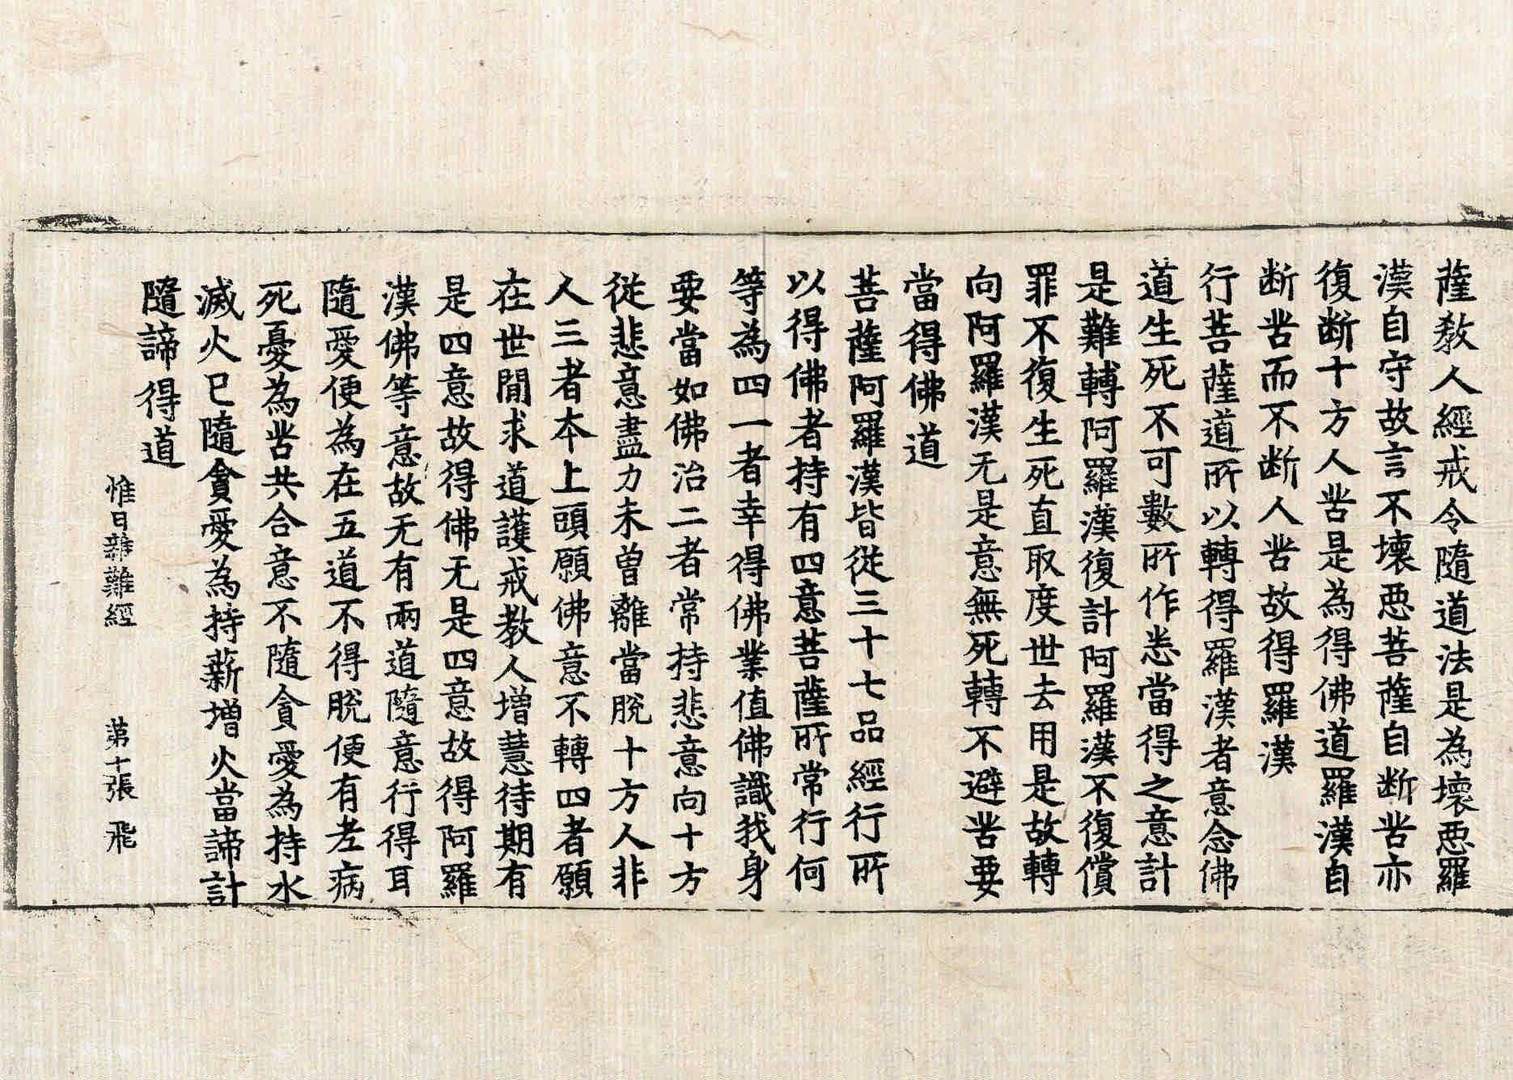 薩教人經戒令隨道法是為壞惡羅
漢自守故言不壞惡菩薩自斷苦亦
復断十方人苦是為得佛道羅漢自
断苦而不断人苦故得羅漢
行菩薩道所以轉得羅漢者意念佛
道生死不可數所作悉當得之意計
是難轉阿羅漢復計阿羅漢不復償
罪不復生死直取度世去用是故轉
向阿羅漢无是意無死轉不避苦要
當得佛道
菩薩阿羅漢皆從三十七品經行所
以得佛者持有四意菩薩所常行何
等為四一者幸得佛業值佛識我身
要當如佛治二者常持悲意向十方
從悲意盡力未曾離當脫十方人非
人三者本上頭願佛意不轉四者願
在世間求道護戒教人增慧待期有
是四意故得佛无是四意故得阿羅
漢佛等意故无有兩道隨意行得耳
隨愛便為在五道不得脫便有老病
死憂為苦共合意不隨貪愛為持水
滅火已隨貪愛為持薪增火當諦計
隨諦得道
惟日雜難經 第十張 飛